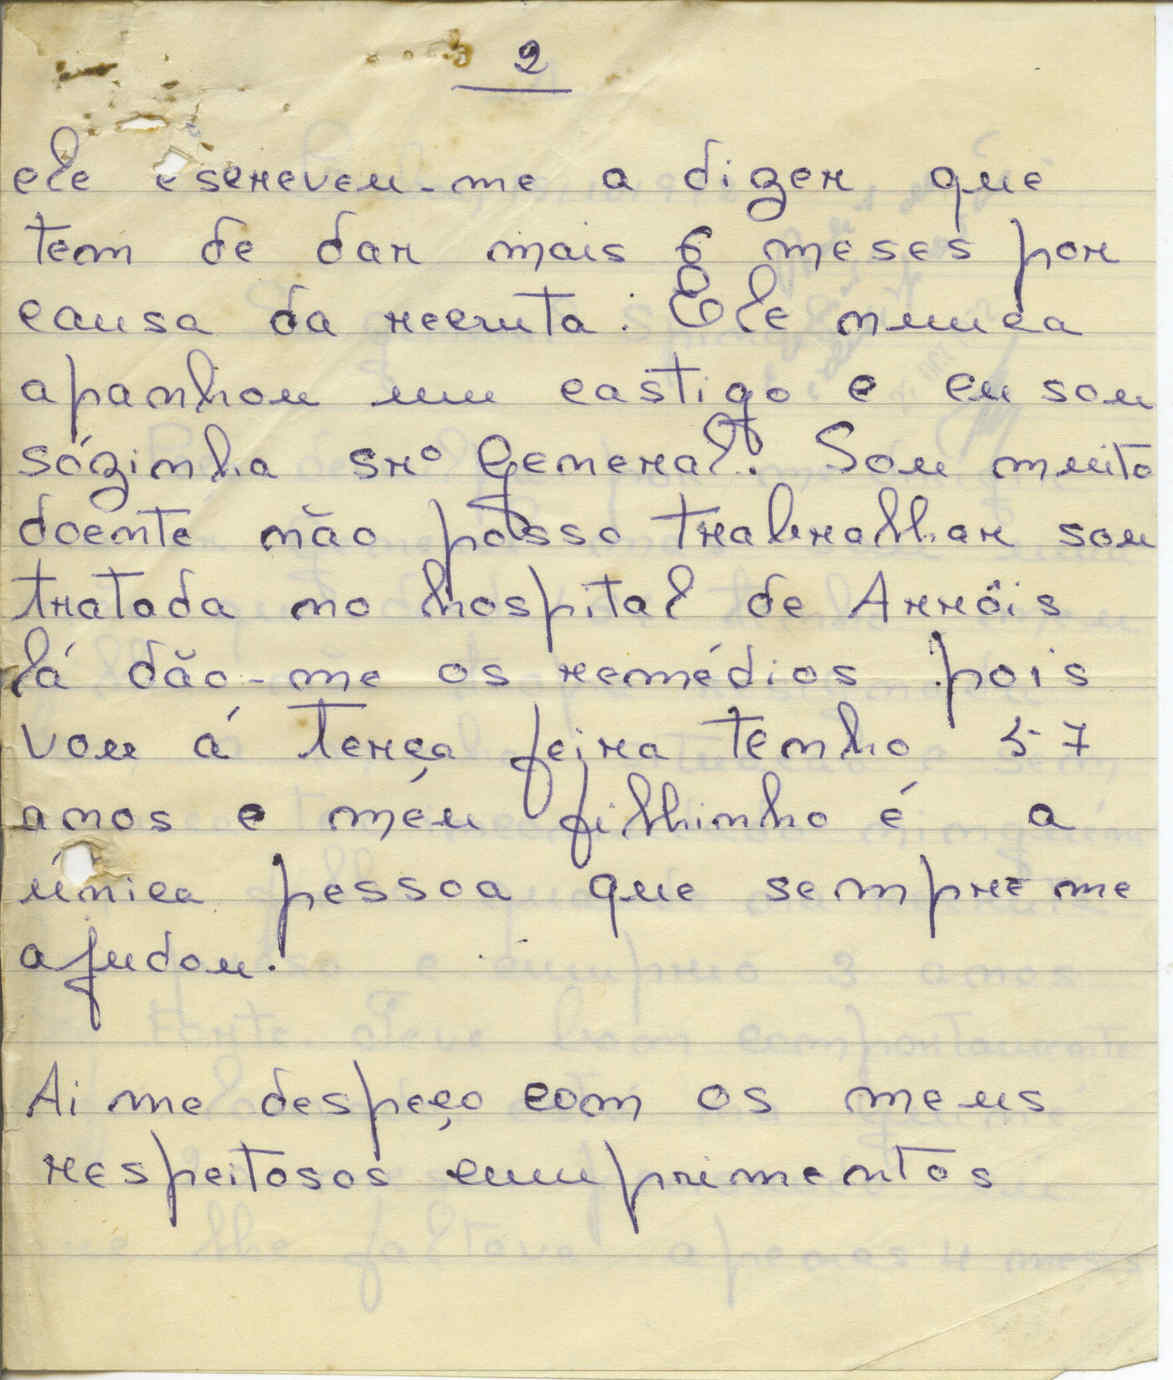 2
ele escreveu-me a dizer que
tem de dar mais 6 meses por
causa da recruta. Ele nunca
apanhou um castigo e eu sou
sózinha srº General. Sou muito
doente não posso trabralhar sou
tratada no hospital de Arrôis
lá dão-me os remédios pois
vou á terça feira tenho 57
anos e méu filhinho é a
única pessoa que sempre me
ajudou.
Ai me despeço com os meus
respeitosos cumprimentos